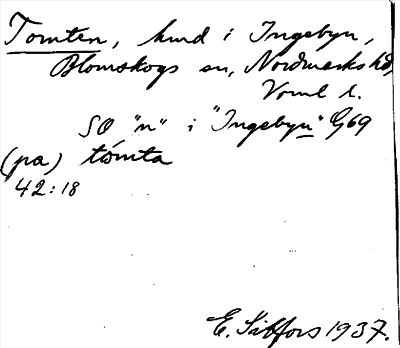 Tomten, hmd i Ingebyn,
Blomskogs sn, Nordmarks hd,
Vrml l.
SO "n" i "Ingebyn" G69
(pa) tómta
42:18
E. Sibfors 1937.